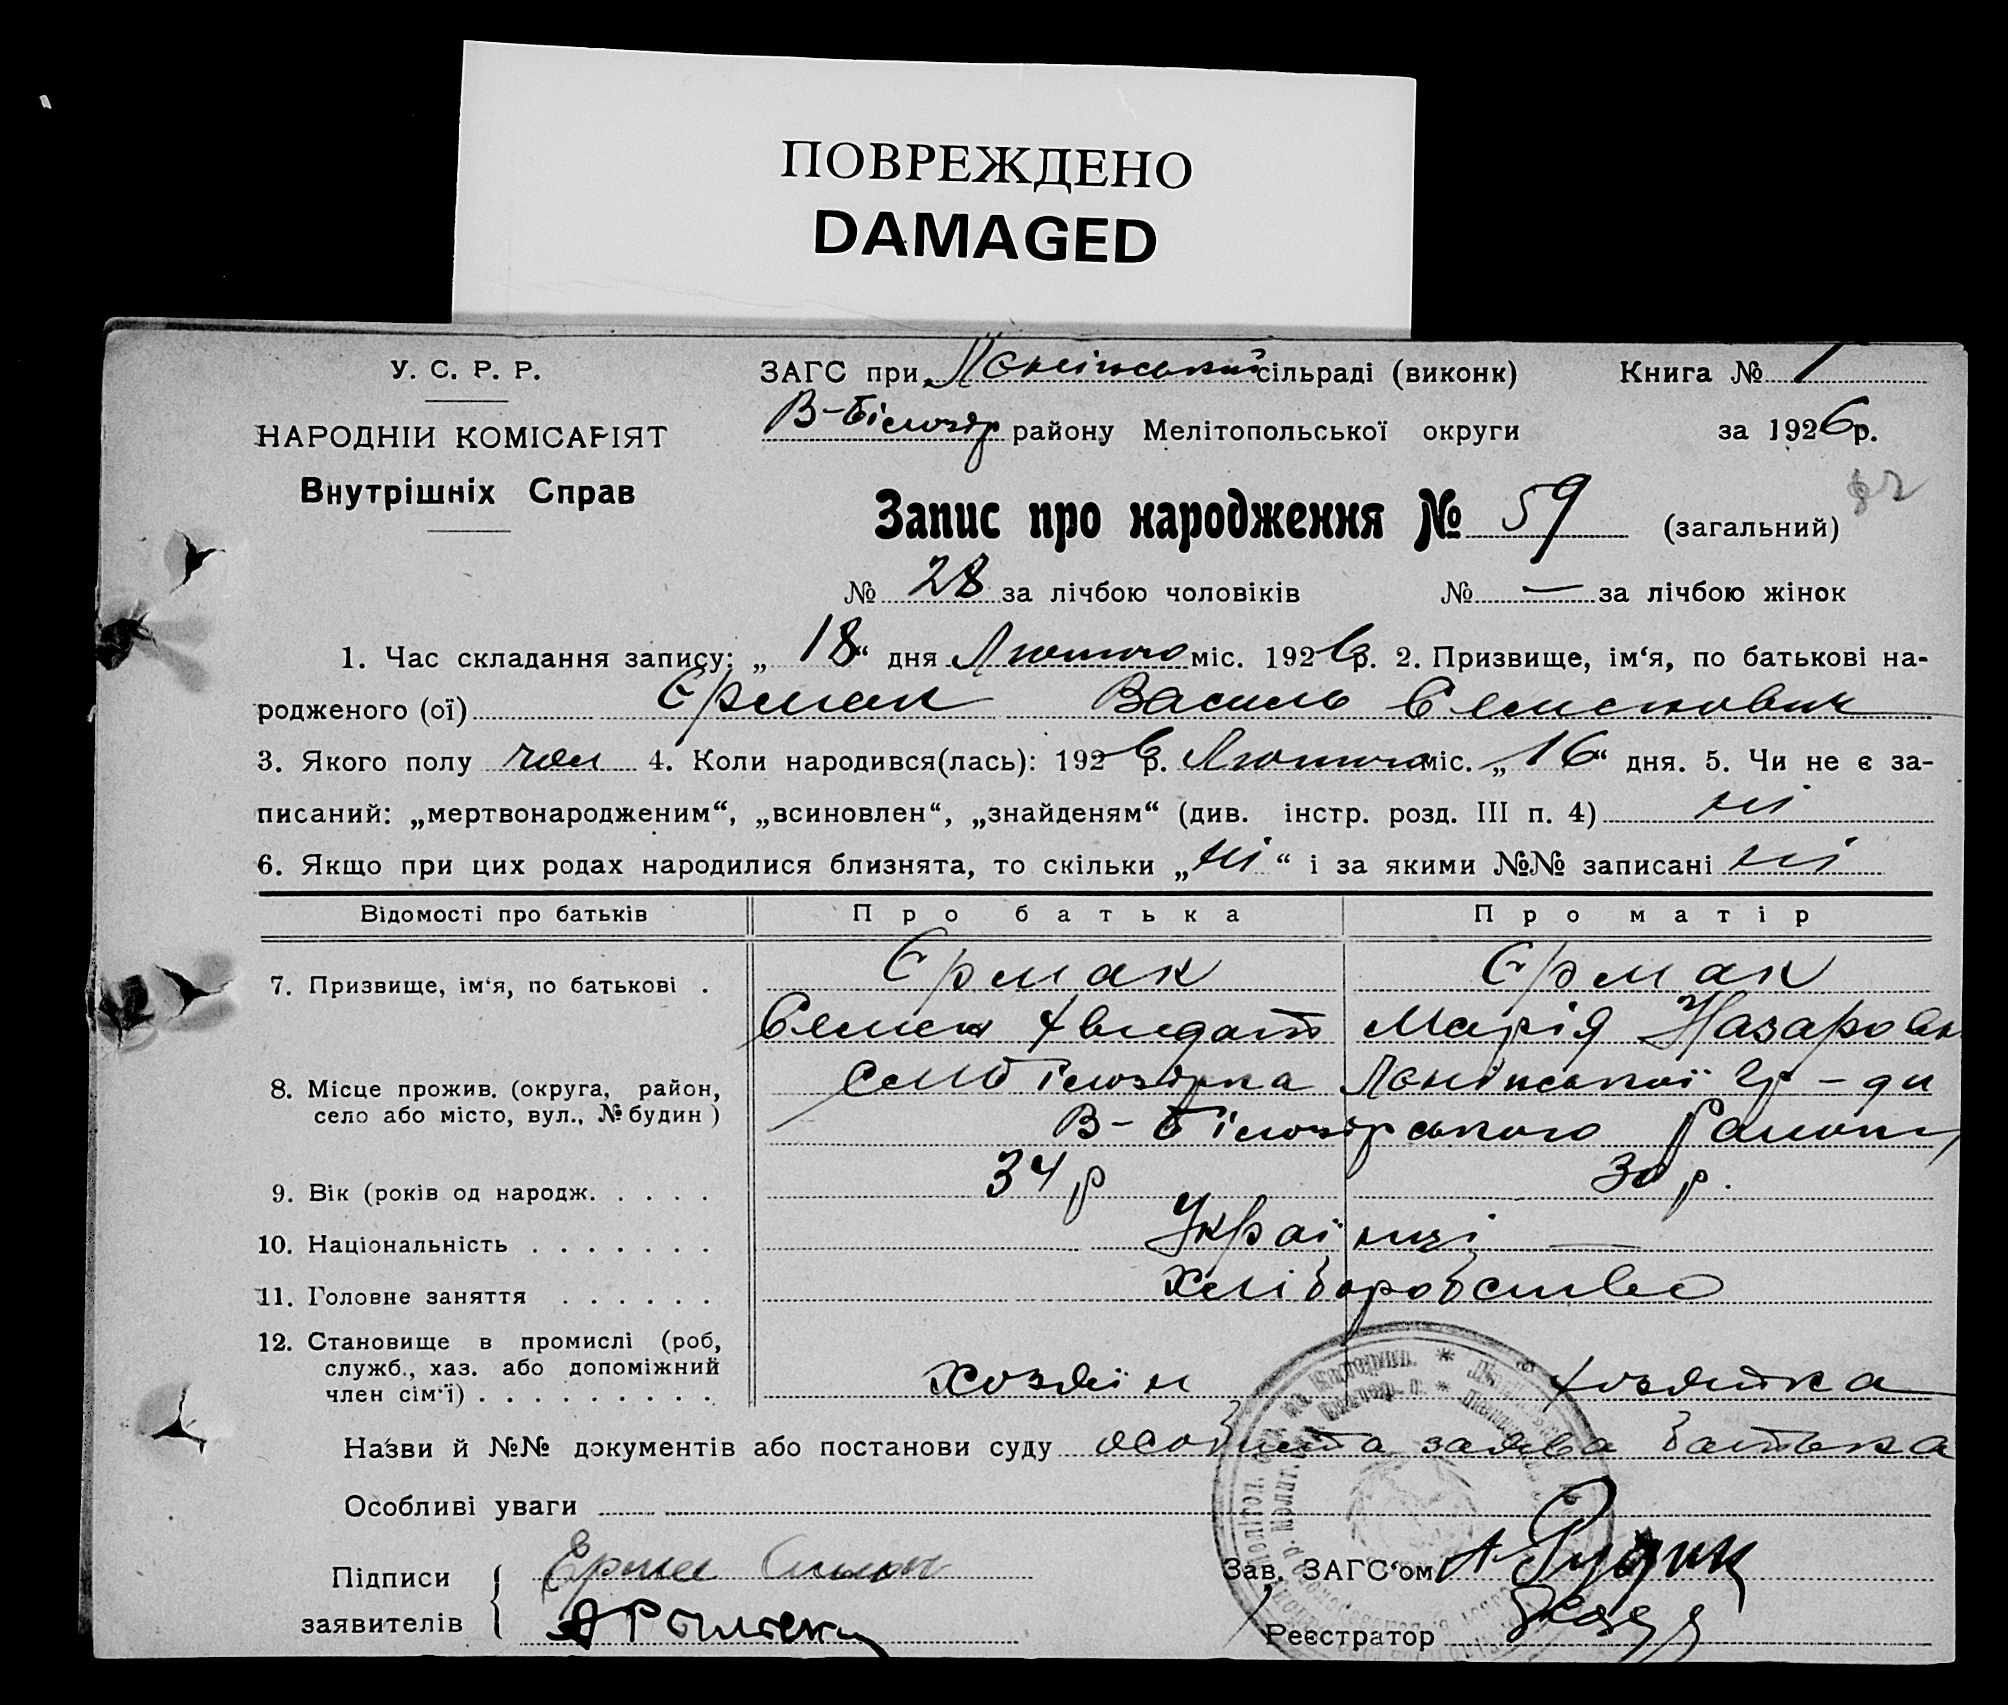 ПОВРЕЖДЕНО
DAMAGED
У. С. Р. Р.
ЗАГС при Ленінській сільраді (виконк) Книга № 1
НАРОДНІЙ КОМІСАРІЯТ
В-Білозір району Мелітопольської округи за 1926р.
Внутрішніх Справ
Запис про народження № 59 (загальний)
№ 28 за лічбою чоловіків № — за лічбою жінок
1. Час складання запису: „ 18 “ дня Лютого міс. 1926р. 2. Призвище, ім‘я, по батькові на-
родженого (ої) Єрмак Василь Семенович
3. Якого полу чол 4. Коли народився(лась): 1926р. Лютого міс. „ 16 “ дня. 5. Чи не є за-
писаний: „мертвонародженим“, „всиновлен“, „знайденям“ (див. інстр. розд. III п. 4) ні
6. Якщо при цих родах народилися близнята, то скільки „ ні “ і за якими №№ записані ні
Відомості про батьків Про батька Про матір
7. Призвище, ім‘я, по батькові . Єрмак Єрмак
Семен Марія Назаровн
8. Місце прожив. (округа, район, Ленінської гр-ди
село або місто, вул., № будин) В-Білозірського Району
9. Вік (років од народж. . . . . 34 р 30 р.
10. Національність . . . . . . . Українці —
11. Головне заняття . . . . . . Хліборобство
12. Становище в промислі (роб,
служб., хаз. або допоміжний
член сім‘ї) . . . . . . . . . хозяїн хозяйка
Назви й №№ документів або постанови суду особиста заява батька
Особливі уваги
Підписи
заявителів
Зав. ЗАГС‘ом
Реєстратор